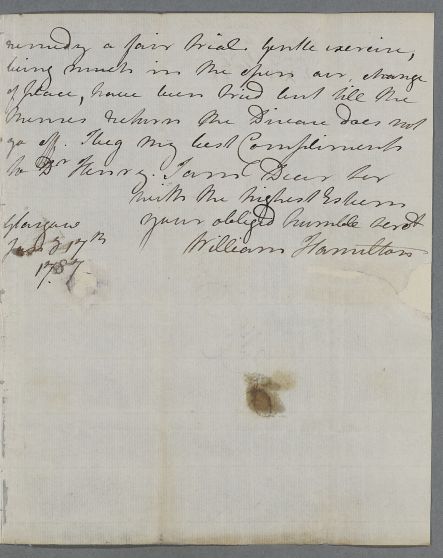 remedy a fair trial. Gentle exercise,
living much in the open air, change
of place, have been tried but till the
Menses return the Disease does not
go off. I beg my best Compliments
to Dr Henry. I am Dear Sir
with the highest Esteem
your obliged humble servt
William Hamilton
Glasgow
17th
1787.